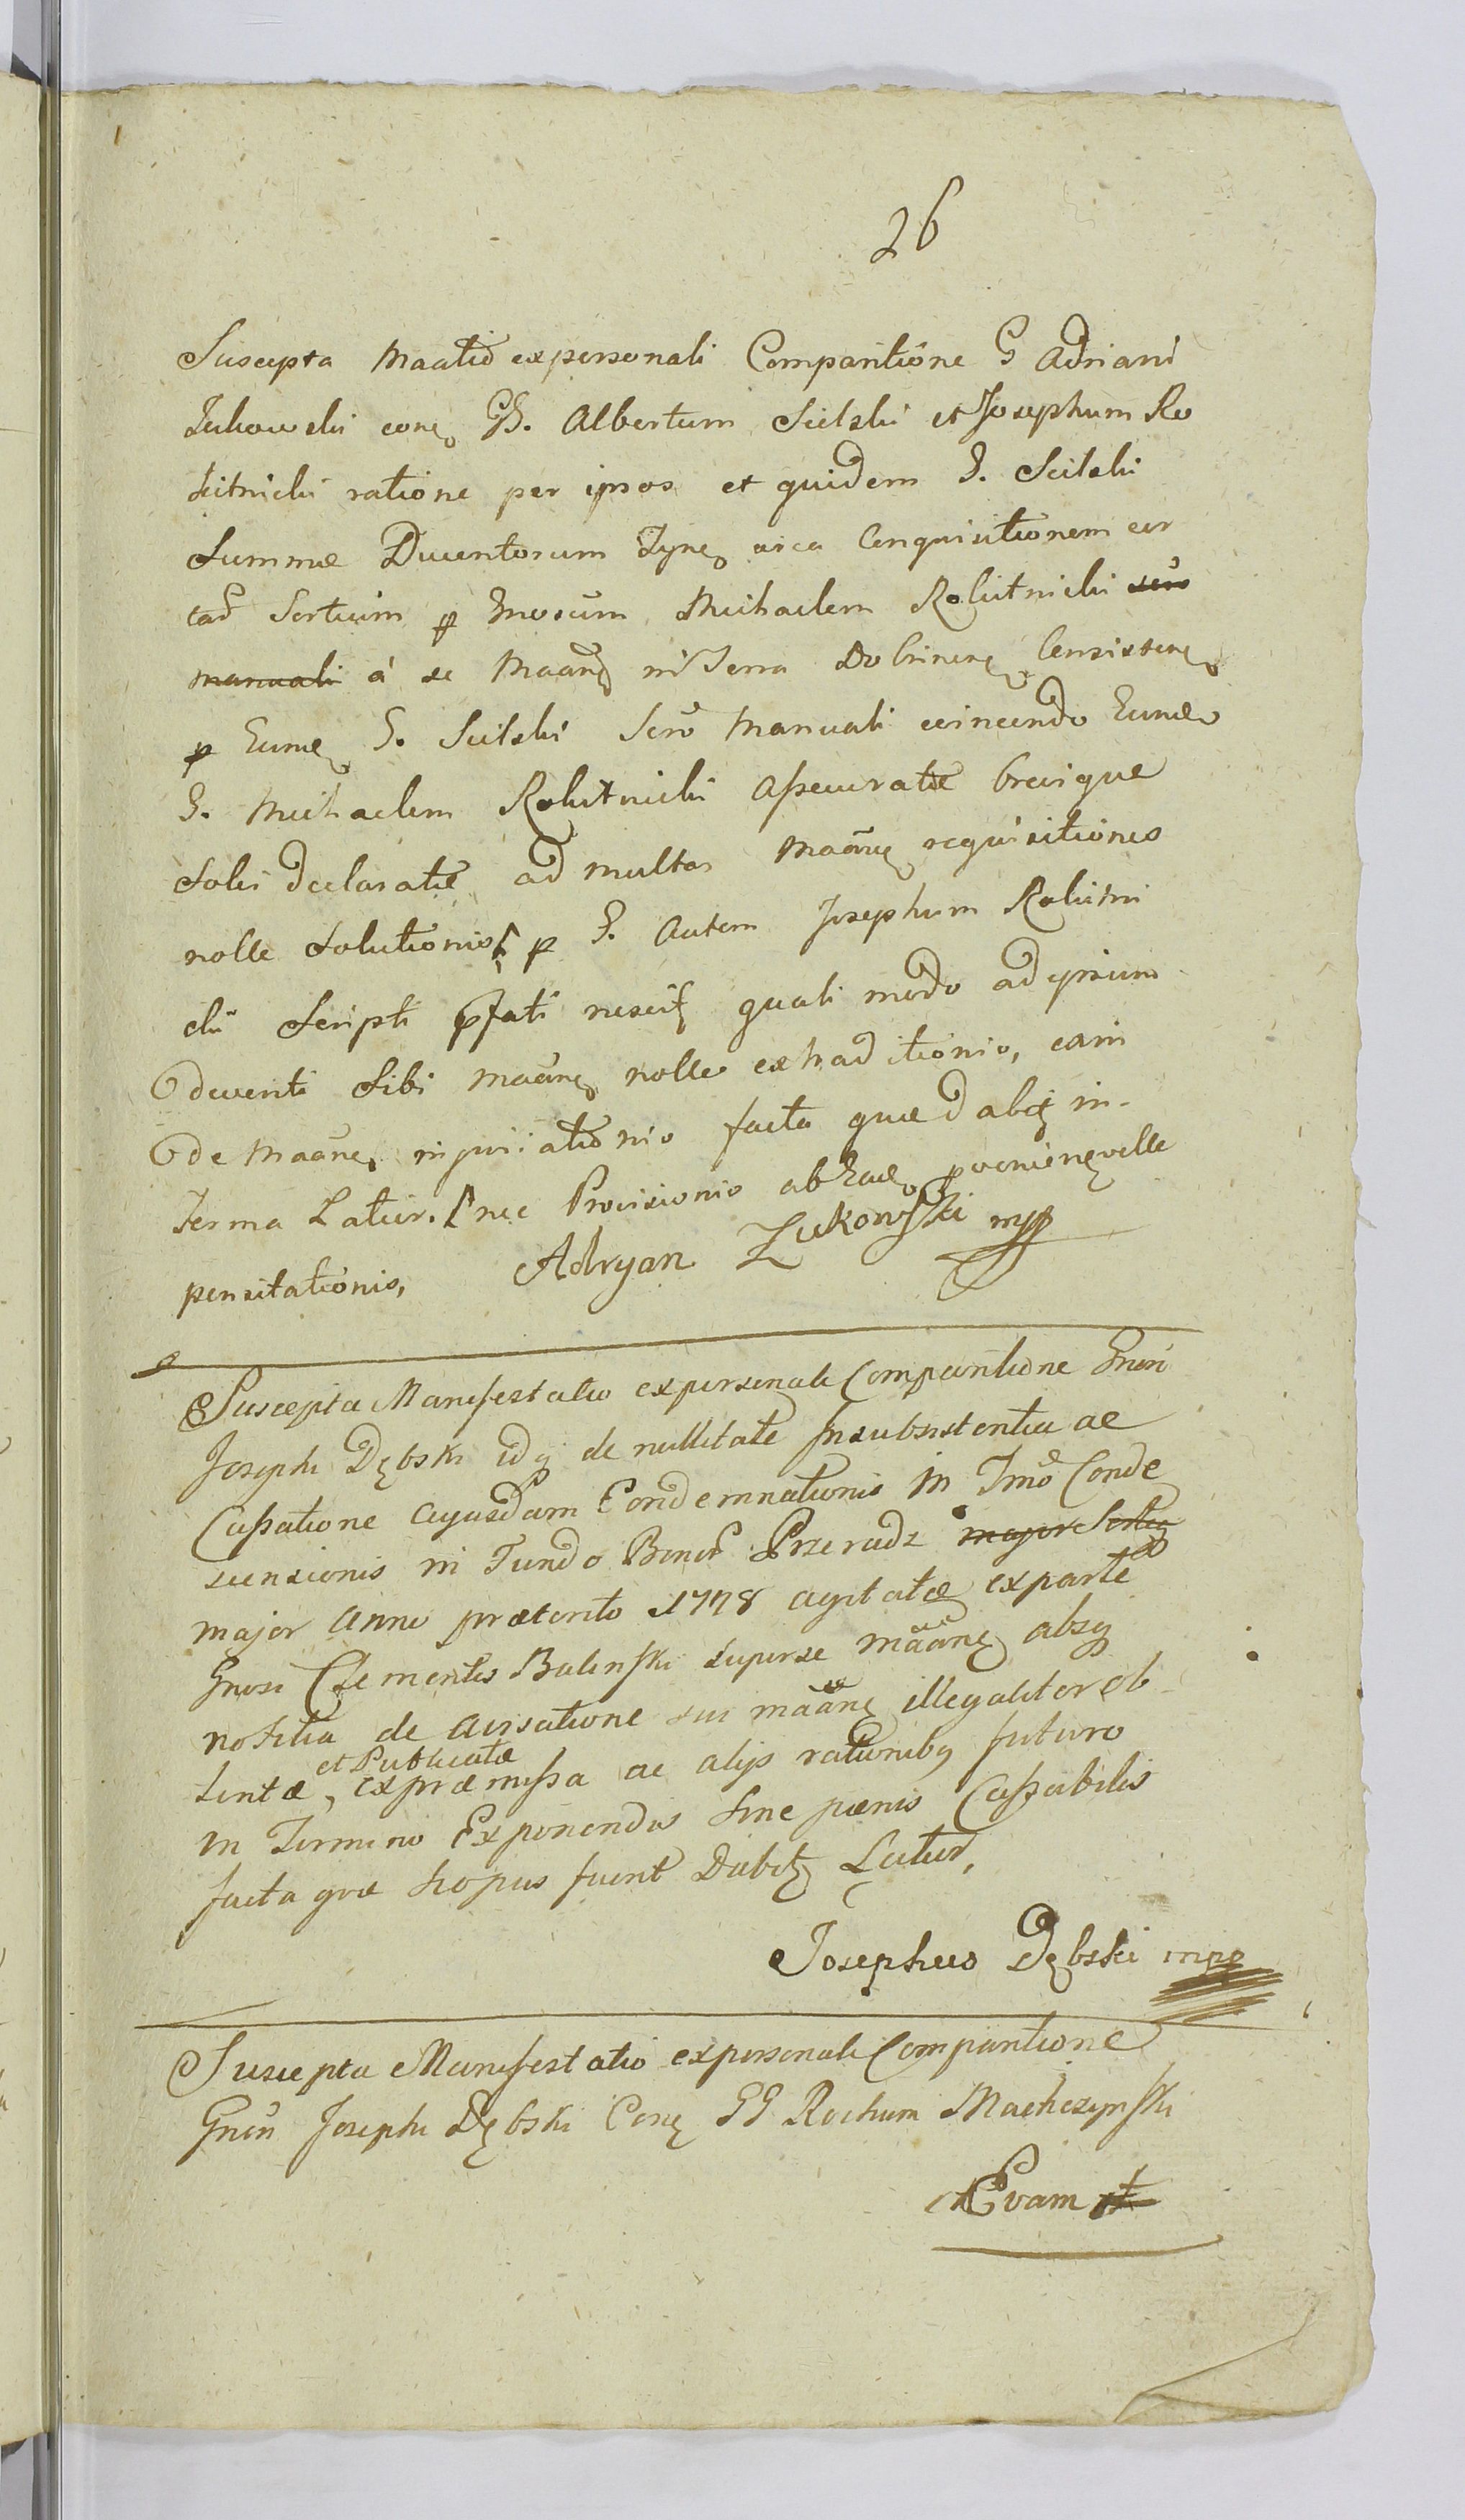 26
Suscepta Maatio ex personali Comparitione G Adriani
Zukowski conq GG. Albertum Sulski et Josephum Ro
kitnicki ratione per ipsos et quidem G. Sulski
Summae Ducentorum Tynq circa Conquisitionem cer
Sertium p Gnosum Michaelem Rokitnicki
á se Maanq in Terra Dobrinenq Consistenq
p Eumq G. Sulski Scro Manuali
G. Michaelem Rokitnicki Assecuratae brevique
Solvi declaratae ad multas Maanq requisitiones
nolle Solutionis, p G. Autem Josephum Rokitni
cki Scripti pfati nescitq quali modo ad ipsum
deventi Sibi Maanq nolle extraditionis, eam
de Maanq facta quae dabq in
Termo Latur. nec Provisionis ab Eadq pvenienq velle
pensitationis, Adryan Zukowski mpp
Suscepta Manifestatio ex personali Comparitione Gnosi
Josephi Dębski idq de nullitate Insubsistentia ac
Cassatione Cujusdam Condemnationis in Tmo Conde
scensionis in Fundo Bonor Przeradz major Serteq
major Anno praeterito 1778 agitatae ex parte
Gnosi Clementis Balinski super se Maanq absq
notitia de avisatione sui maanq illegaliter ob
et Publicatae
tentae, ex praemissa ac alijs rationibq futuro
in Termino Exponendis sine paenis Cassabilis
facta quae hopus fuerit Dabitq Latur,
Josephus Dębski mpp
Suscepta Manifestatio ex personali Comparitione
Gnosi Josephi Dębski Conq GG Rochum Machczynski
et Evam et